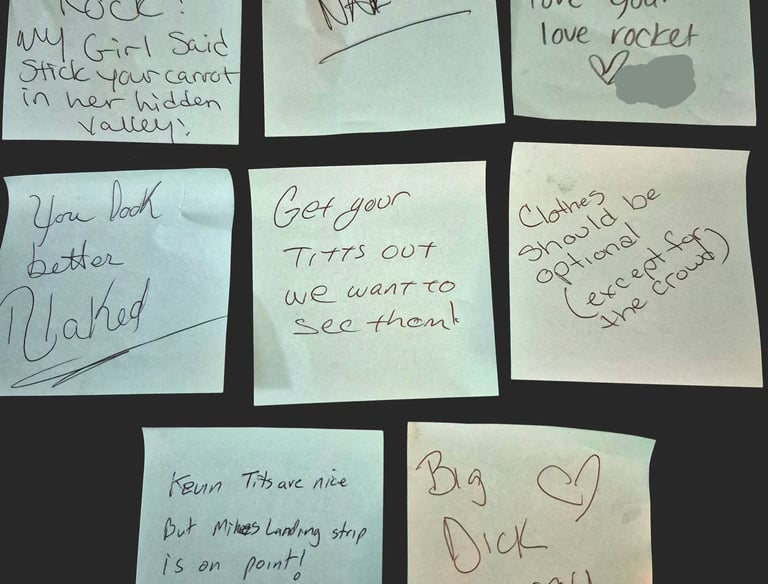 ROCK!
My Girl Said
Stick your carrot
in her hidden
Valley!
love your
love rocket
You Look
better
Naked
Get your
TITTS OUT
we want to
see them!
Clothes
should be
optional
(except for
the crowd)
Kevin Tits are nice
But Mikes Landing strip
is on point!
Big
Dick